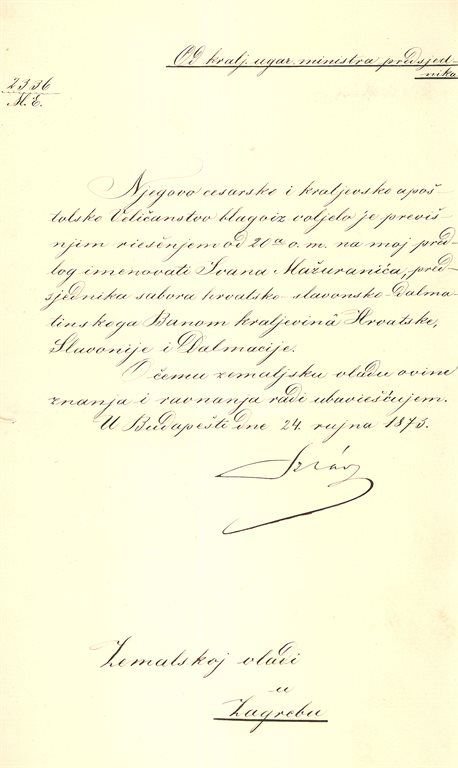 Od kralj. ugar. ministra predsjed-
nika
2336
M. E.
Njegovo cesarsko i kraljevsko apoš-
tolsko Veličanstvo blagoizvoljelo je previš-
njem riešenjem od 20a o. m. na moj pred-
log imenovati Ivana Mažuranića, pred-
sjednika sabora hrvatsko-slavonsko-dalma-
tinskoga Banom kraljevinâ Hrvatske,
Slavonije i Dalmacije.
O čemu zemaljsku vladu ovime
znanja i ravnanja radi ubaviešćujem.
U Budapešti dne 24. rujna 1873.
Szlávy
Zemalskoj vladi
u
Zagrebu